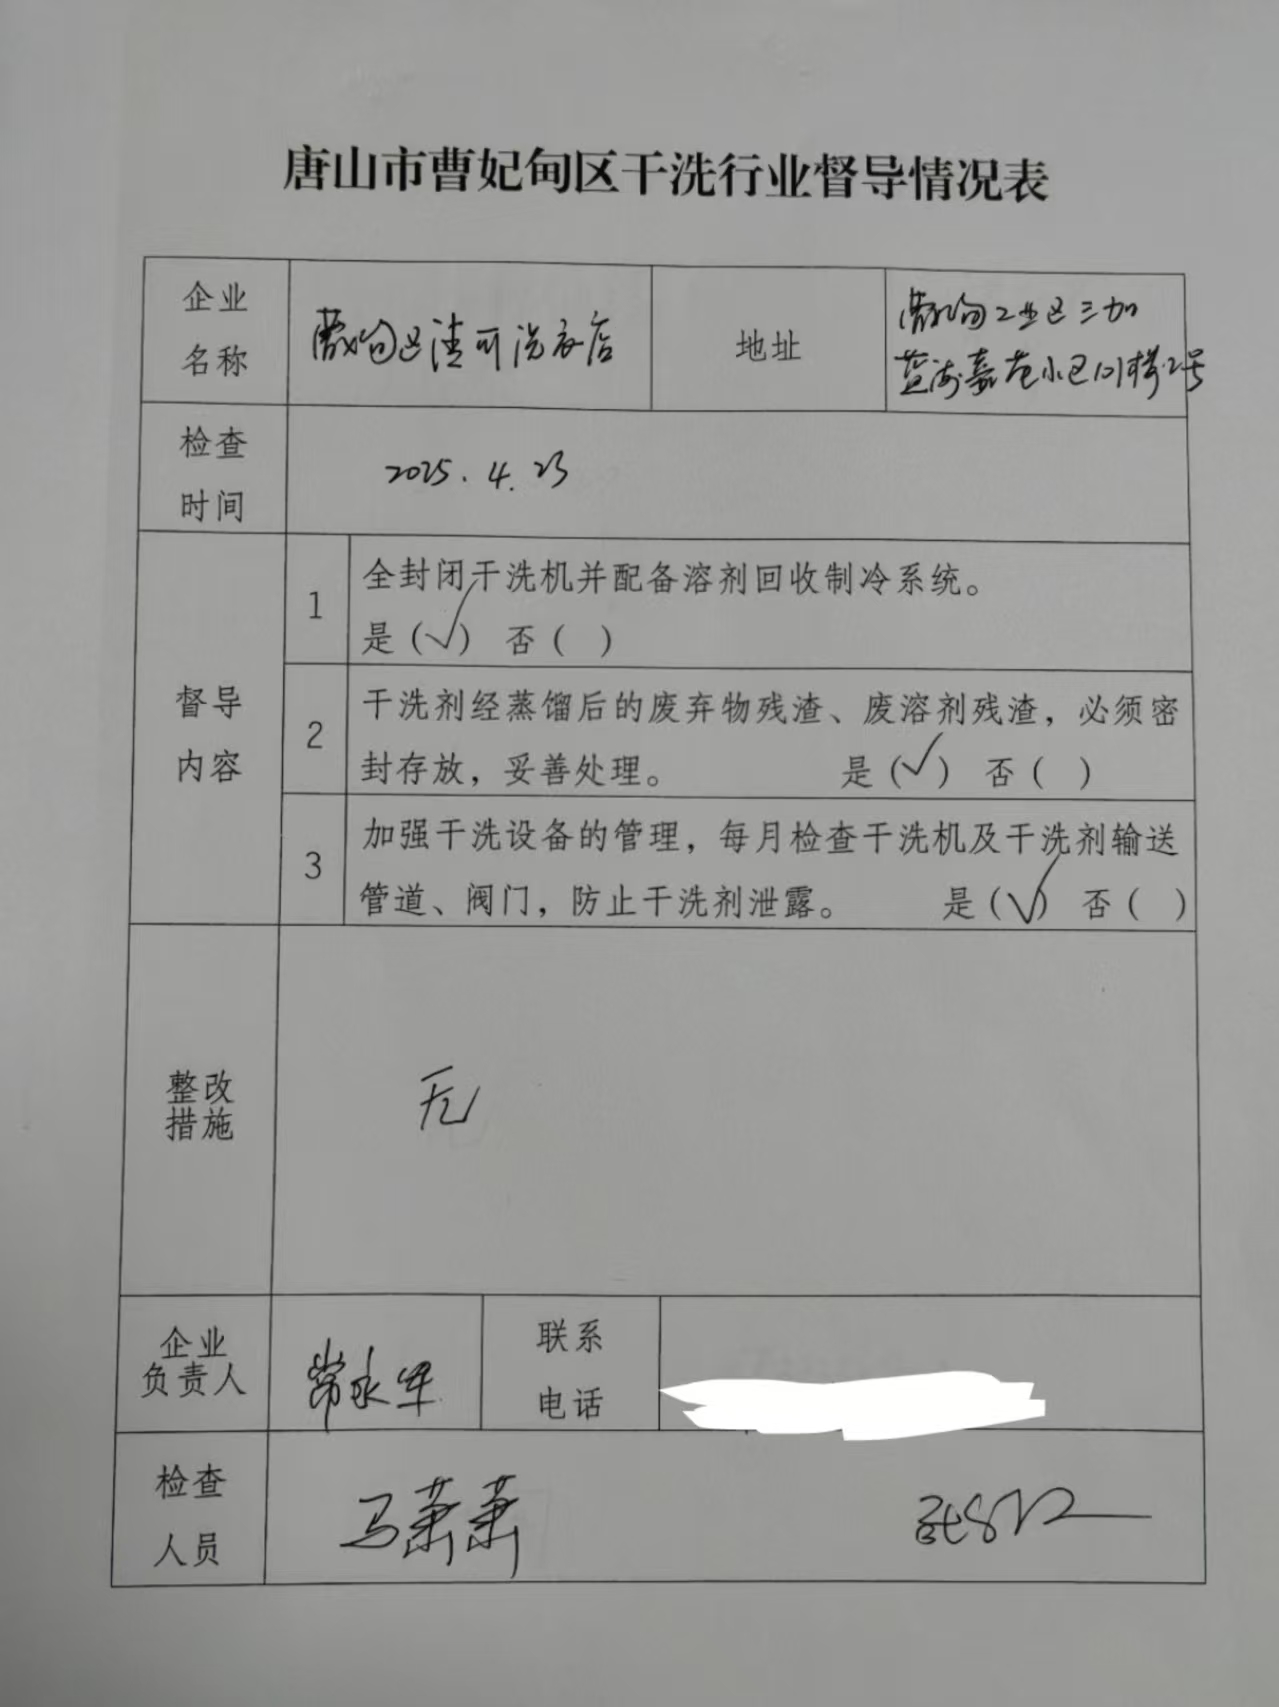 唐山市曹妃甸区干洗行业督导情况表
企业
名称
曹妃甸区洁可洗衣店
地址
曹妃甸工业区三加
蓝海嘉苑小区101楼2号
检查
时间
2025.4.23
督导
内容
1
全封闭干洗机并配备溶剂回收制冷系统。
是(√) 否( )
2
干洗剂经蒸馏后的废弃物残渣、废溶剂残渣，必须密
封存放，妥善处理。 是(√) 否( )
3
加强干洗设备的管理，每月检查干洗机及干洗剂输送
管道、阀门，防止干洗剂泄露。 是(√) 否( )
整改
措施
无
企业
负责人
常永军
联系
电话
检查
人员
马萧萧